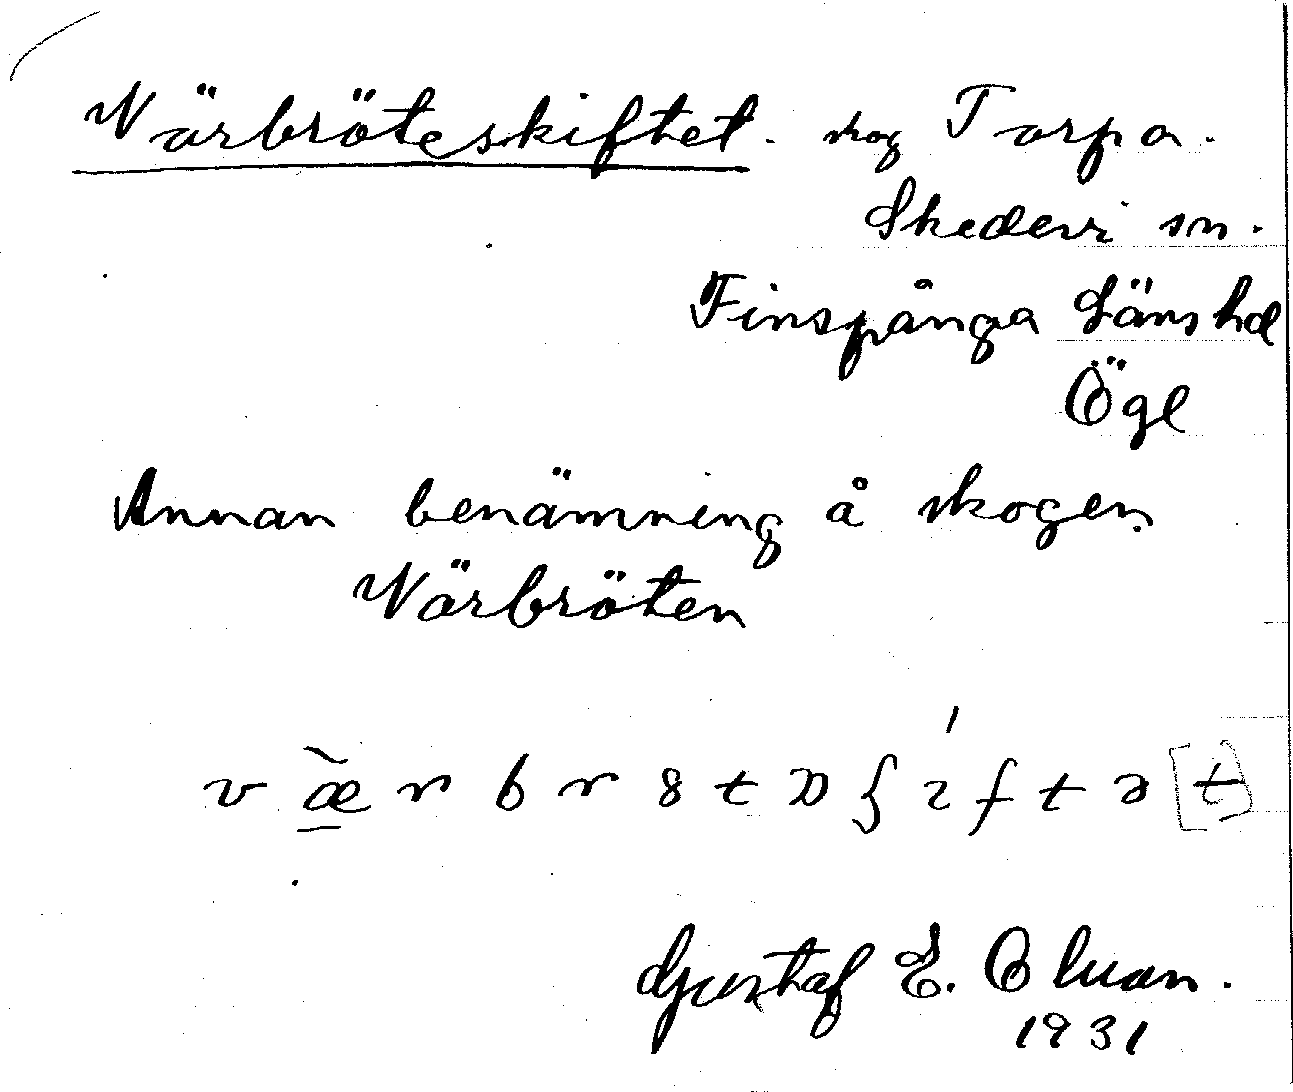 Värbröteskiftet. skog Torpa.
Skedevi sn.
Finspånga Läns hd
Ögl
Annan benämning å skogen
Värbröten
Gustaf E.
1931